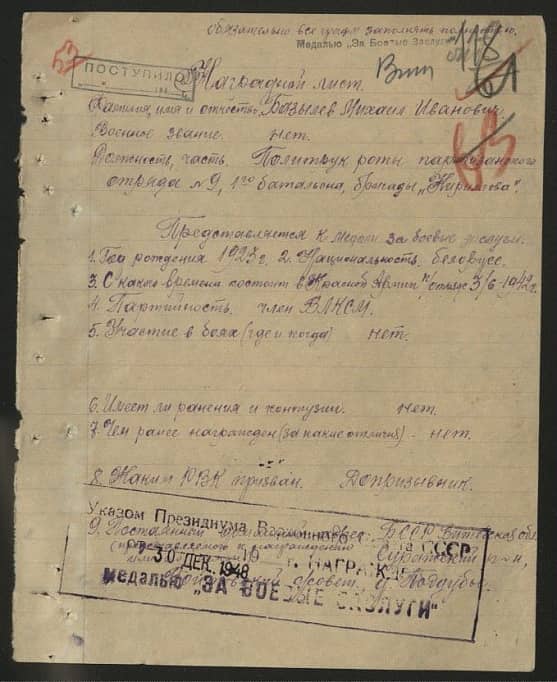 обязательно все графы заполнять полностью.
Медалью „За Боевые Заслуги"
118
53
ПОСТУПИЛО
61
Наградной лист.
83
Фамилия, имя и отчество Базылев Михаил Иванович
Военное звание. нет.
Должность, часть. Политрук роты партизанского
отряда №9, 1го батальона, бригады „Кириллова".
Представляется к медали за боевые заслуги.
1. Год рождения 1923 г. 2. Национальность. белорусс.
3. С какого времени состоит в Красной Армии п/отряде 3/6-1942 г.
4. Партийность. член ВЛКСМ.
5. Участие в боях (где и когда) нет.
6. Имеет ли ранения и контузии. нет.
7. Чем ранее награжден (за какие отличия) - нет.
8. Каким РВК призван. Допризывник.
Указом Президиума Верховного
9. Постоянный адрес. БССР Витебская обл.
(представляемого к награждению Суражский р-н,
от 30 ДЕК. 1948 г. НАГРАЖДЕН
совет. д. Поддубы.
Медалью „ЗА БОЕВЫЕ ЗАСЛУГИ"